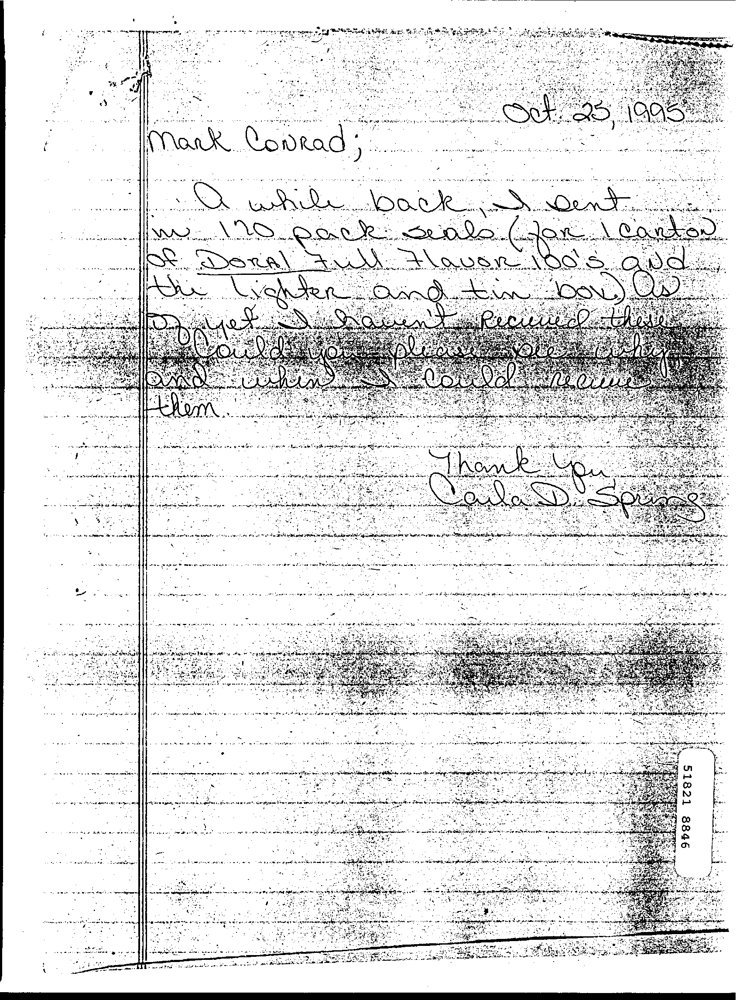 Oct. 25, 1995
Mark Conrad;
A while back, I sent
in 170 pack seals (for 1 carton
of DORAL Full Flavor 100's and
the lighter and tin box) As
of yet I haven't recieved these.
Could you please see why
and when I could recieve
them.
Thank You
Carla D. Spring
51821 8846